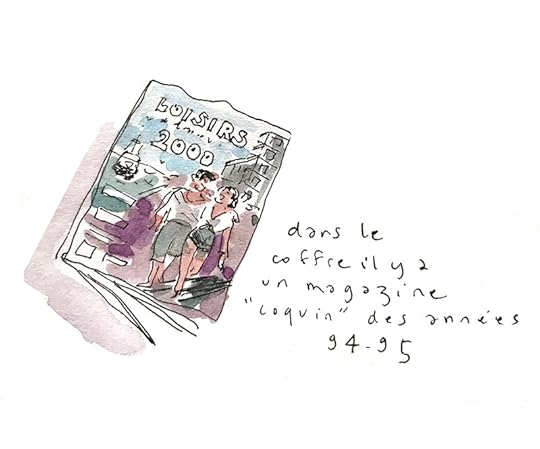 LOISIRS
2000
dans le
coffre il y a
un magazine
"coquin" des années
94-95